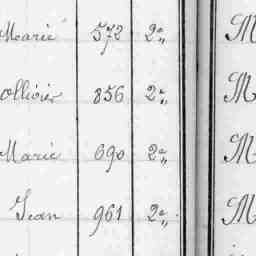 Marie 572 2a,, M
ollivier 856 2a,, M
Marie 690 2a,, M
Jean 961 2a,, M